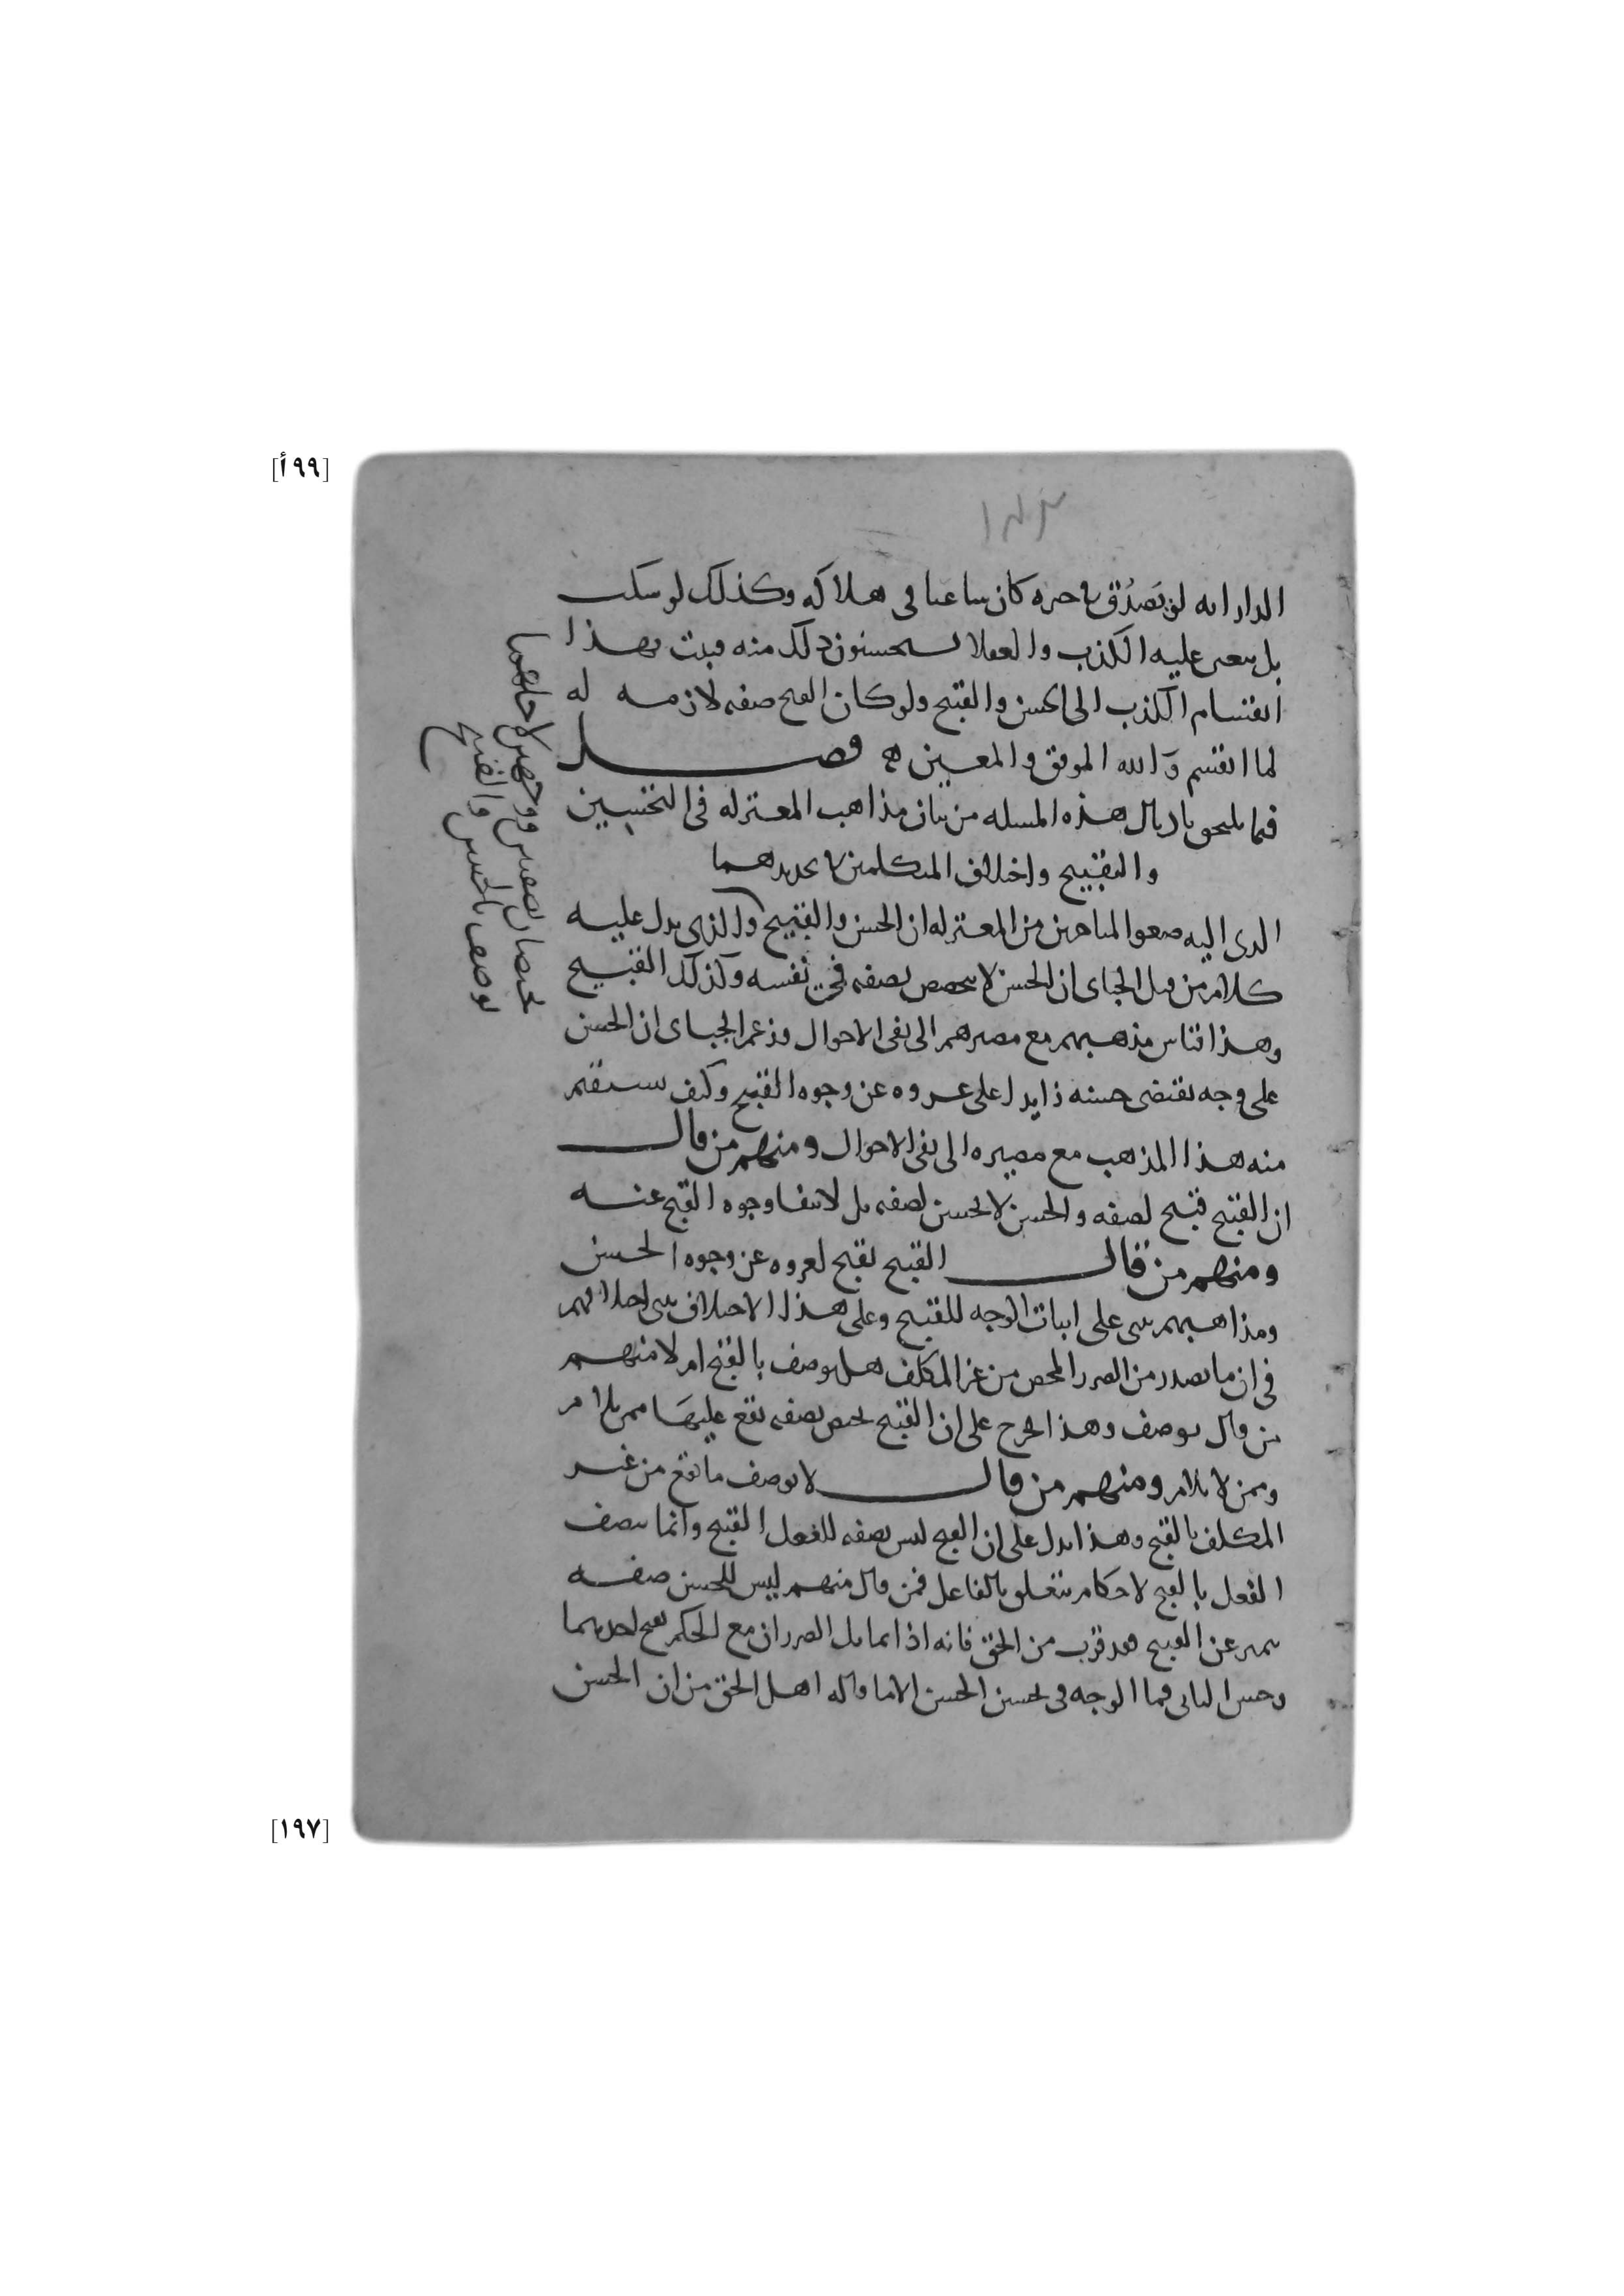 [٩٩أ]
الدار انه لو يصدق في خبره كان ساعيا في هلاكه وكذلك لو سكت
بل يتعين عليه الكذب والعقلا يستحسنون ذلك منه فبت بهذا
انقسام الكذب الى الحسن والقبيح ولو كان القبح صفه لازمه له
لما انقسم والله الموفق والمعين فصل
فيما يلحق باذيال هذه المسله من بيان مذاهب المعتزله في التحسين
والتقبيح واختلاف المتكلمين في تحديدهما
الذي اليه صغو المتاخرين من المعتزله ان الحسن والقبيح والذي يدل عليه
يختصان بصفتين وتختص لاجلهما
يوصف بالحسن والقبيح
كلام من قبل الجباى ان الحسن لا يختص بصفه في نفسه وكذلك القبيح
وهذا قياس مذهبهم مع مصيرهم الى نفى الاحوال وزعم الجباى ان الحسن
على وجه يقتضى حسنه زايدا على عروه عن وجوه القبح وكيف يستقيم
منه هذا المذهب مع مصيره الى نفى الاحوال ومنهم من قال
ان القبيح قبيح لصفه والحسن لا يحسن لصفه بل لانتفا وجوه القبح عنه
ومنهم من قال القبيح يقبح لعروه عن وجوه الحسن
ومذاهبهم تبنى على اثبات الوجه للقبيح وعلى هذا الاختلاف بنى اختلافهم
في ان ما يصدر من الضرر المحض من غير المكلف هل يوصف بالقبح ام لا منهم
من قال يوصف وهذا يخرج على ان القبيح يختص بصفه يقع عليها ممن يلام
وممن لا يلام ومنهم من قال لا يوصف ما يقع من غير
المكلف بالقبح وهذا يدل على ان القبح ليس بصفه للفعل القبيح وانما يتصف
الفعل بالقبح لاحكام تتعلق بالفاعل فمن قال منهم ليس للحسن صفه
يتميز عن القبيح فقد قرب من الحق فانه اذا تماثل الضرران مع الحكم بقبح احدهما
وحسن الثاني فما الوجه في تحسين الحسن الا ما قاله اهل الحق من ان الحسن
[١٩٧]